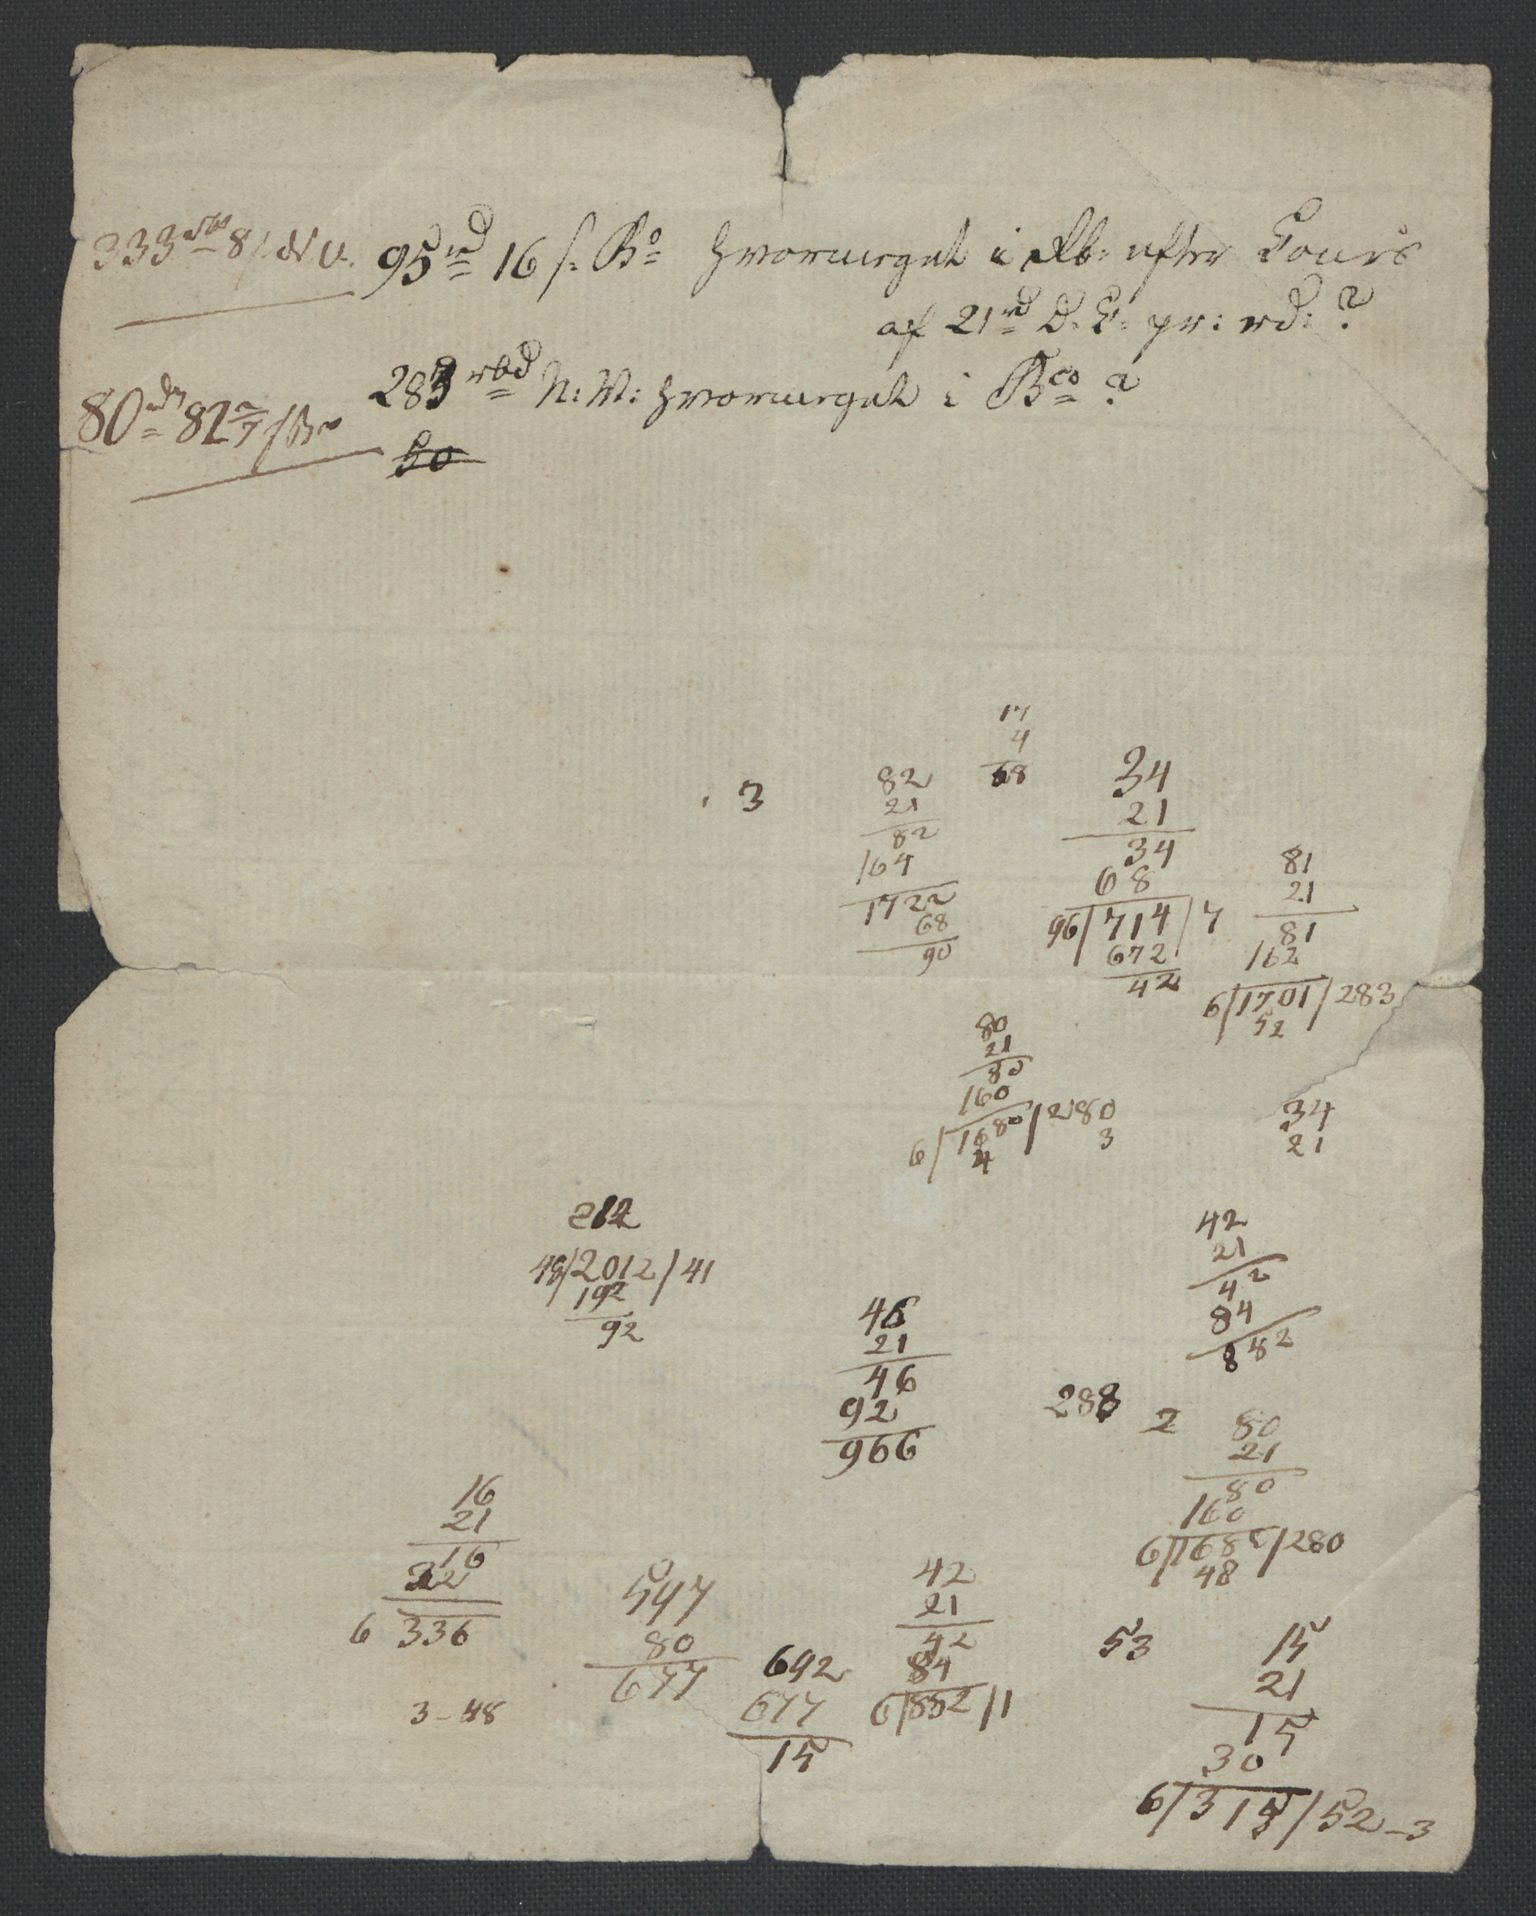 333 rbd 8 s N.V. 95 rd 16 s. Bo hvormeget i Rb: efter Cours
af 21 rd D: C: pr: rd: ?
80 rd 82 2/7 s Bo 283 rbd N: V: hvormeget i Bco ?
50
17
4
68
3
82
21
82
164
1722
68
90
34
21
34
68
96/714/7
672
42
81
21
81
162
6/1701/283
52
80
21
80
160
6/1680/280
4 3
34
21
212
48/2012/41
192
92
42
21
42
84
882
46
21
46
92
966
288
2
80
21
80
160
6/1680/280
48
16
21
16
32
6 336
3-48
597
80
677
692
677
15
42
21
42
84
6/882/1
53
15
21
15
30
6/315/52-3
3